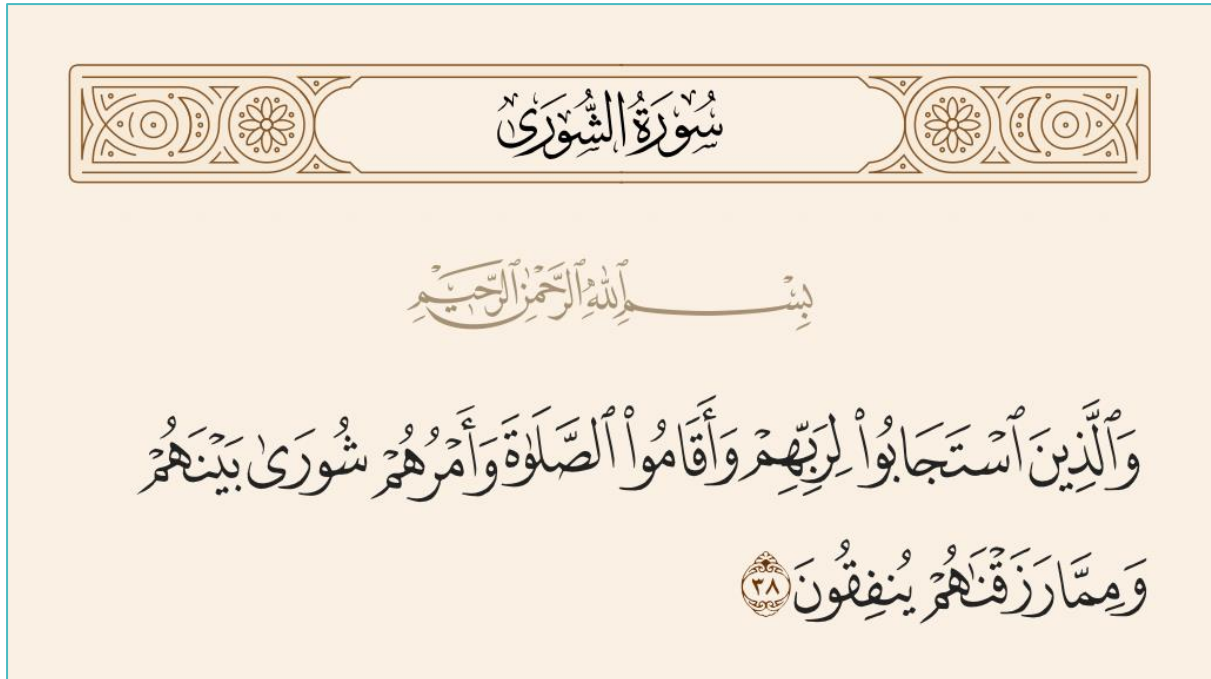 سُورَةُ الشُّورَىٰ
بِسْمِ ٱللَّهِ ٱلرَّحْمَٰنِ ٱلرَّحِيمِ
وَٱلَّذِينَ ٱسْتَجَابُوا۟ لِرَبِّهِمْ وَأَقَامُوا۟ ٱلصَّلَوٰةَ وَأَمْرُهُمْ شُورَىٰ بَيْنَهُمْ
وَمِمَّا رَزَقْنَٰهُمْ يُنفِقُونَ ٣٨